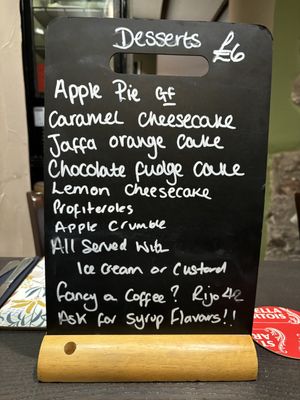 Desserts £6
Apple Pie GF
Caramel Cheesecake
Jaffa orange cake
Chocolate fudge cake
Lemon cheesecake
Profiteroles
Apple Crumble
All Served With
Ice Cream or Custard
Fancy a Coffee? Rijo42
Ask for Syrup Flavours!!